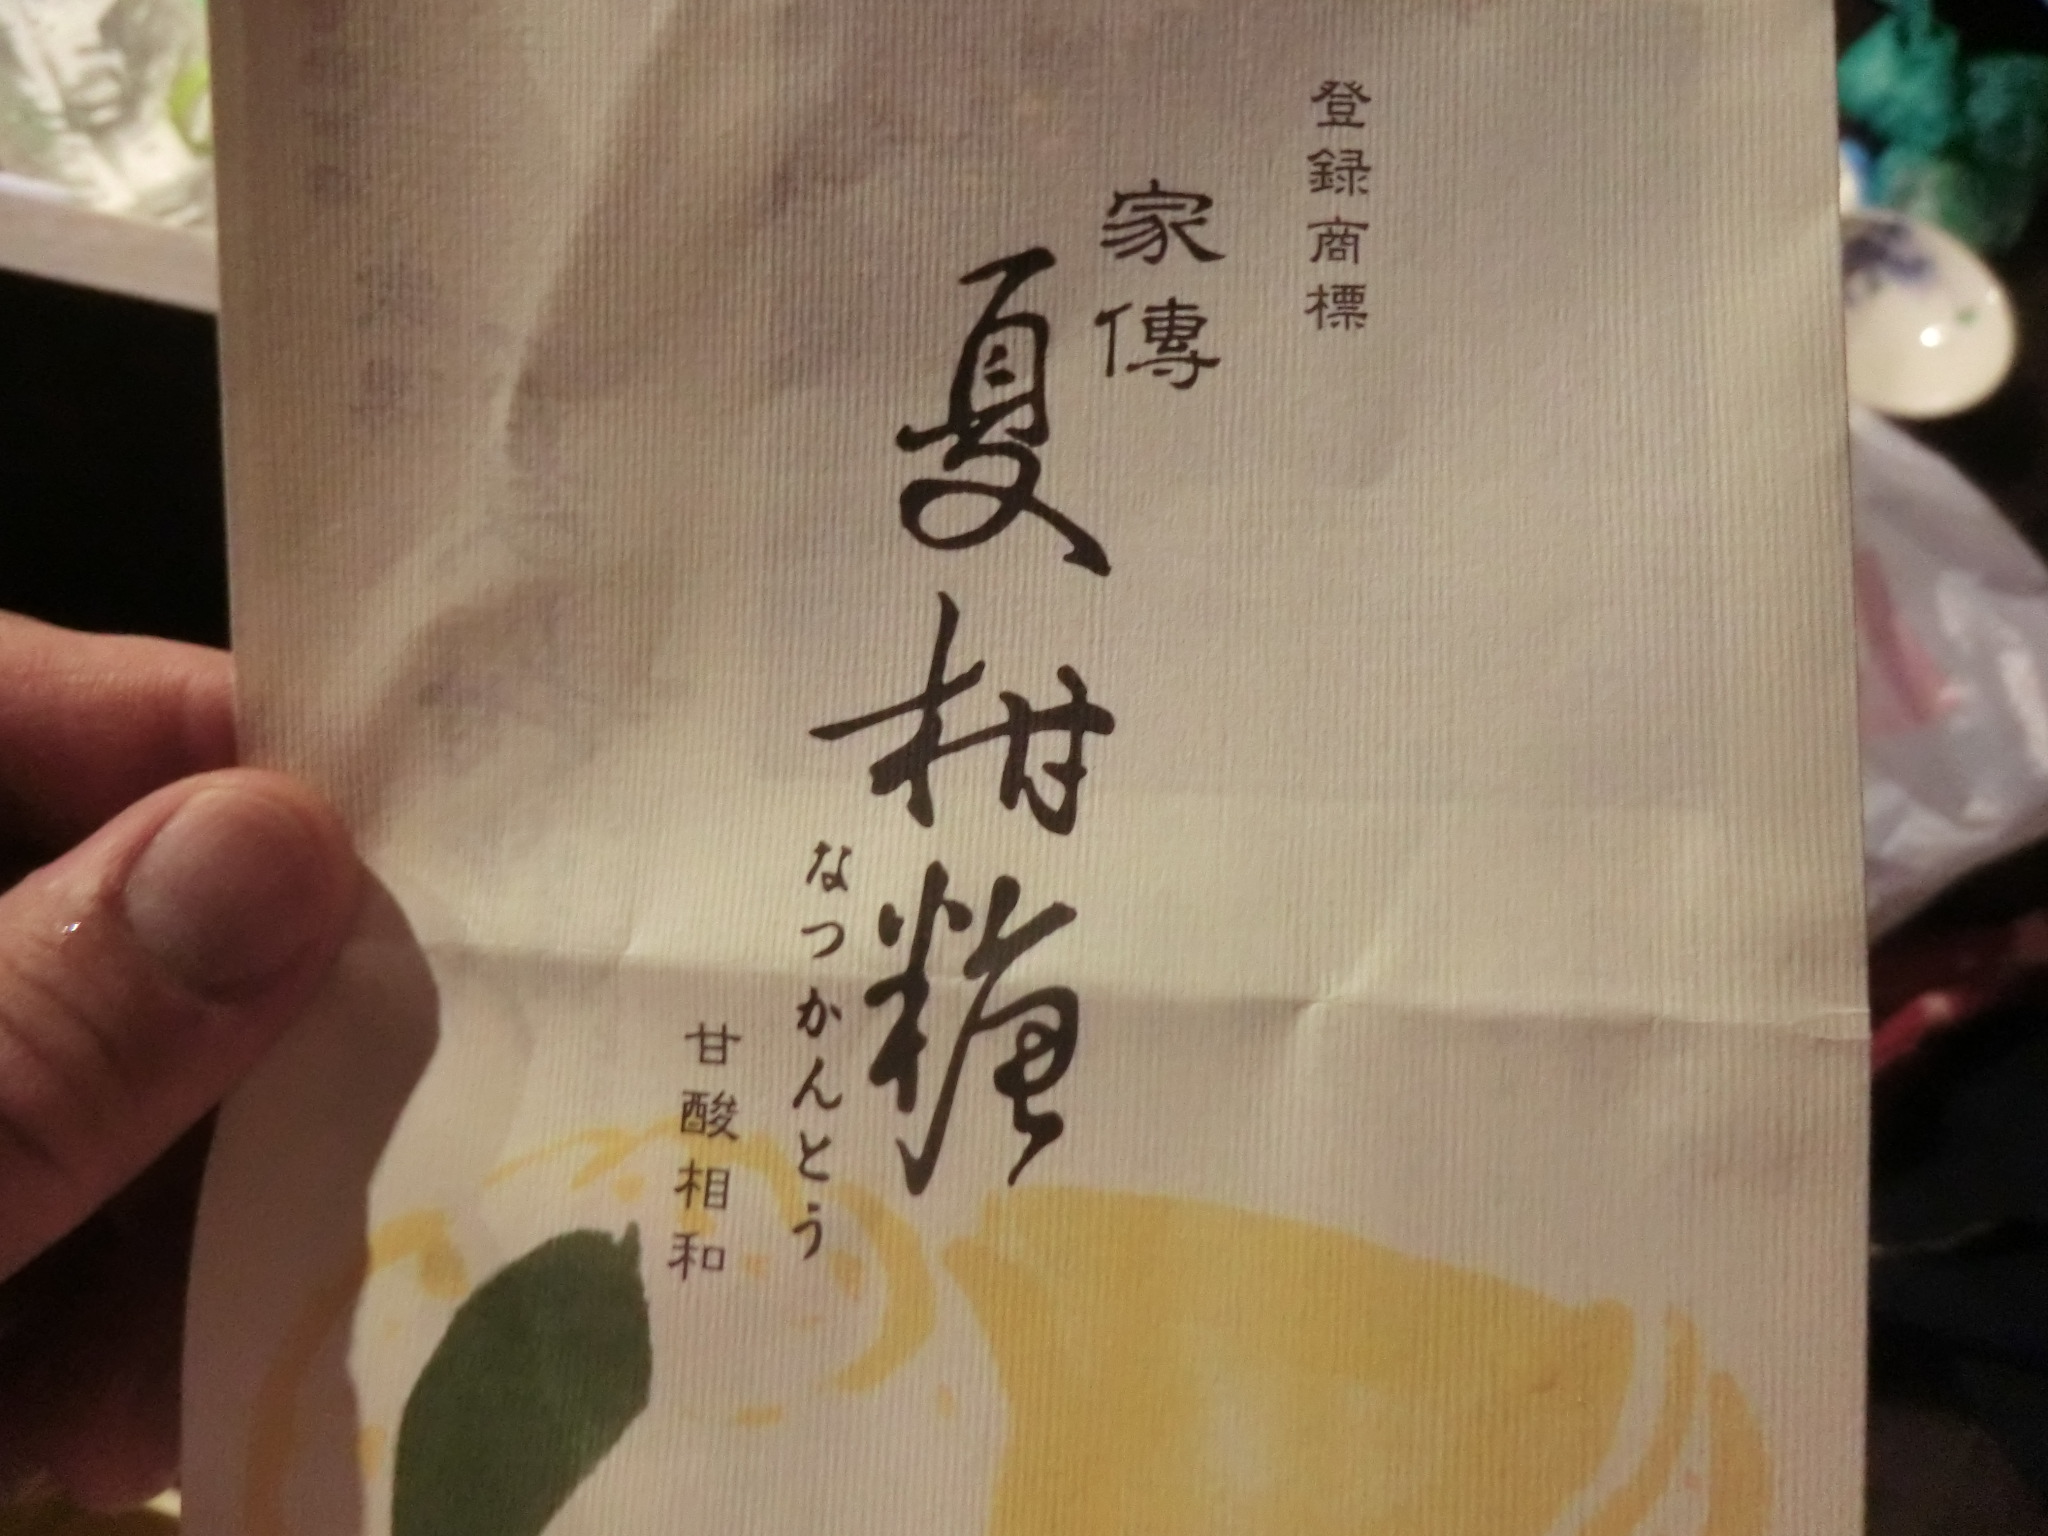 登録商標
家傳
夏柑糖
なつかんとう
甘酸相和